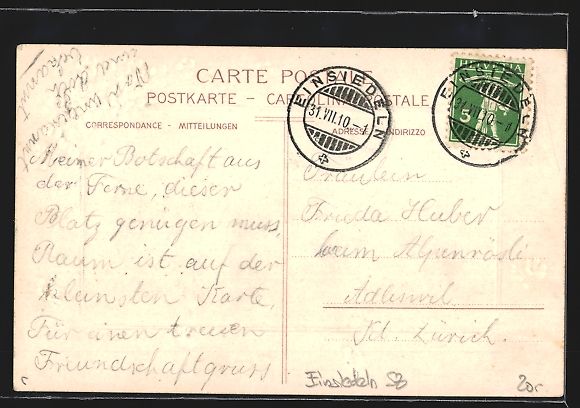 CARTE POSTALE
POSTKARTE - CARTOLINA POSTALE
CORRESPONDANCE - MITTEILUNGEN
ADRESSE - INDIRIZZO
EINSIEDELN
31.VII.10-4
HELVETIA
5
EINSIEDELN
31.VII.10-4
Meiner Botschaft aus
der Ferne, dieser
Platz genügen muss,
Raum ist auf der
kleinsten Karte,
Für einen treuen
Freundschaftgruss
und doch
bekannt
Fräulein
Frieda Huber
beim Alpenrösli
Adliswil
Kt. Zürich.
Einsiedeln SZ
20.-